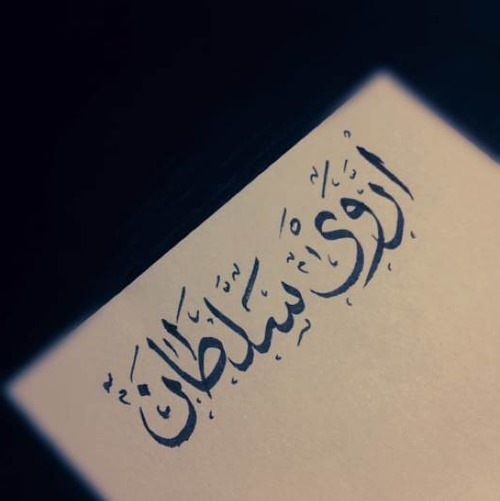 أروى سلطان